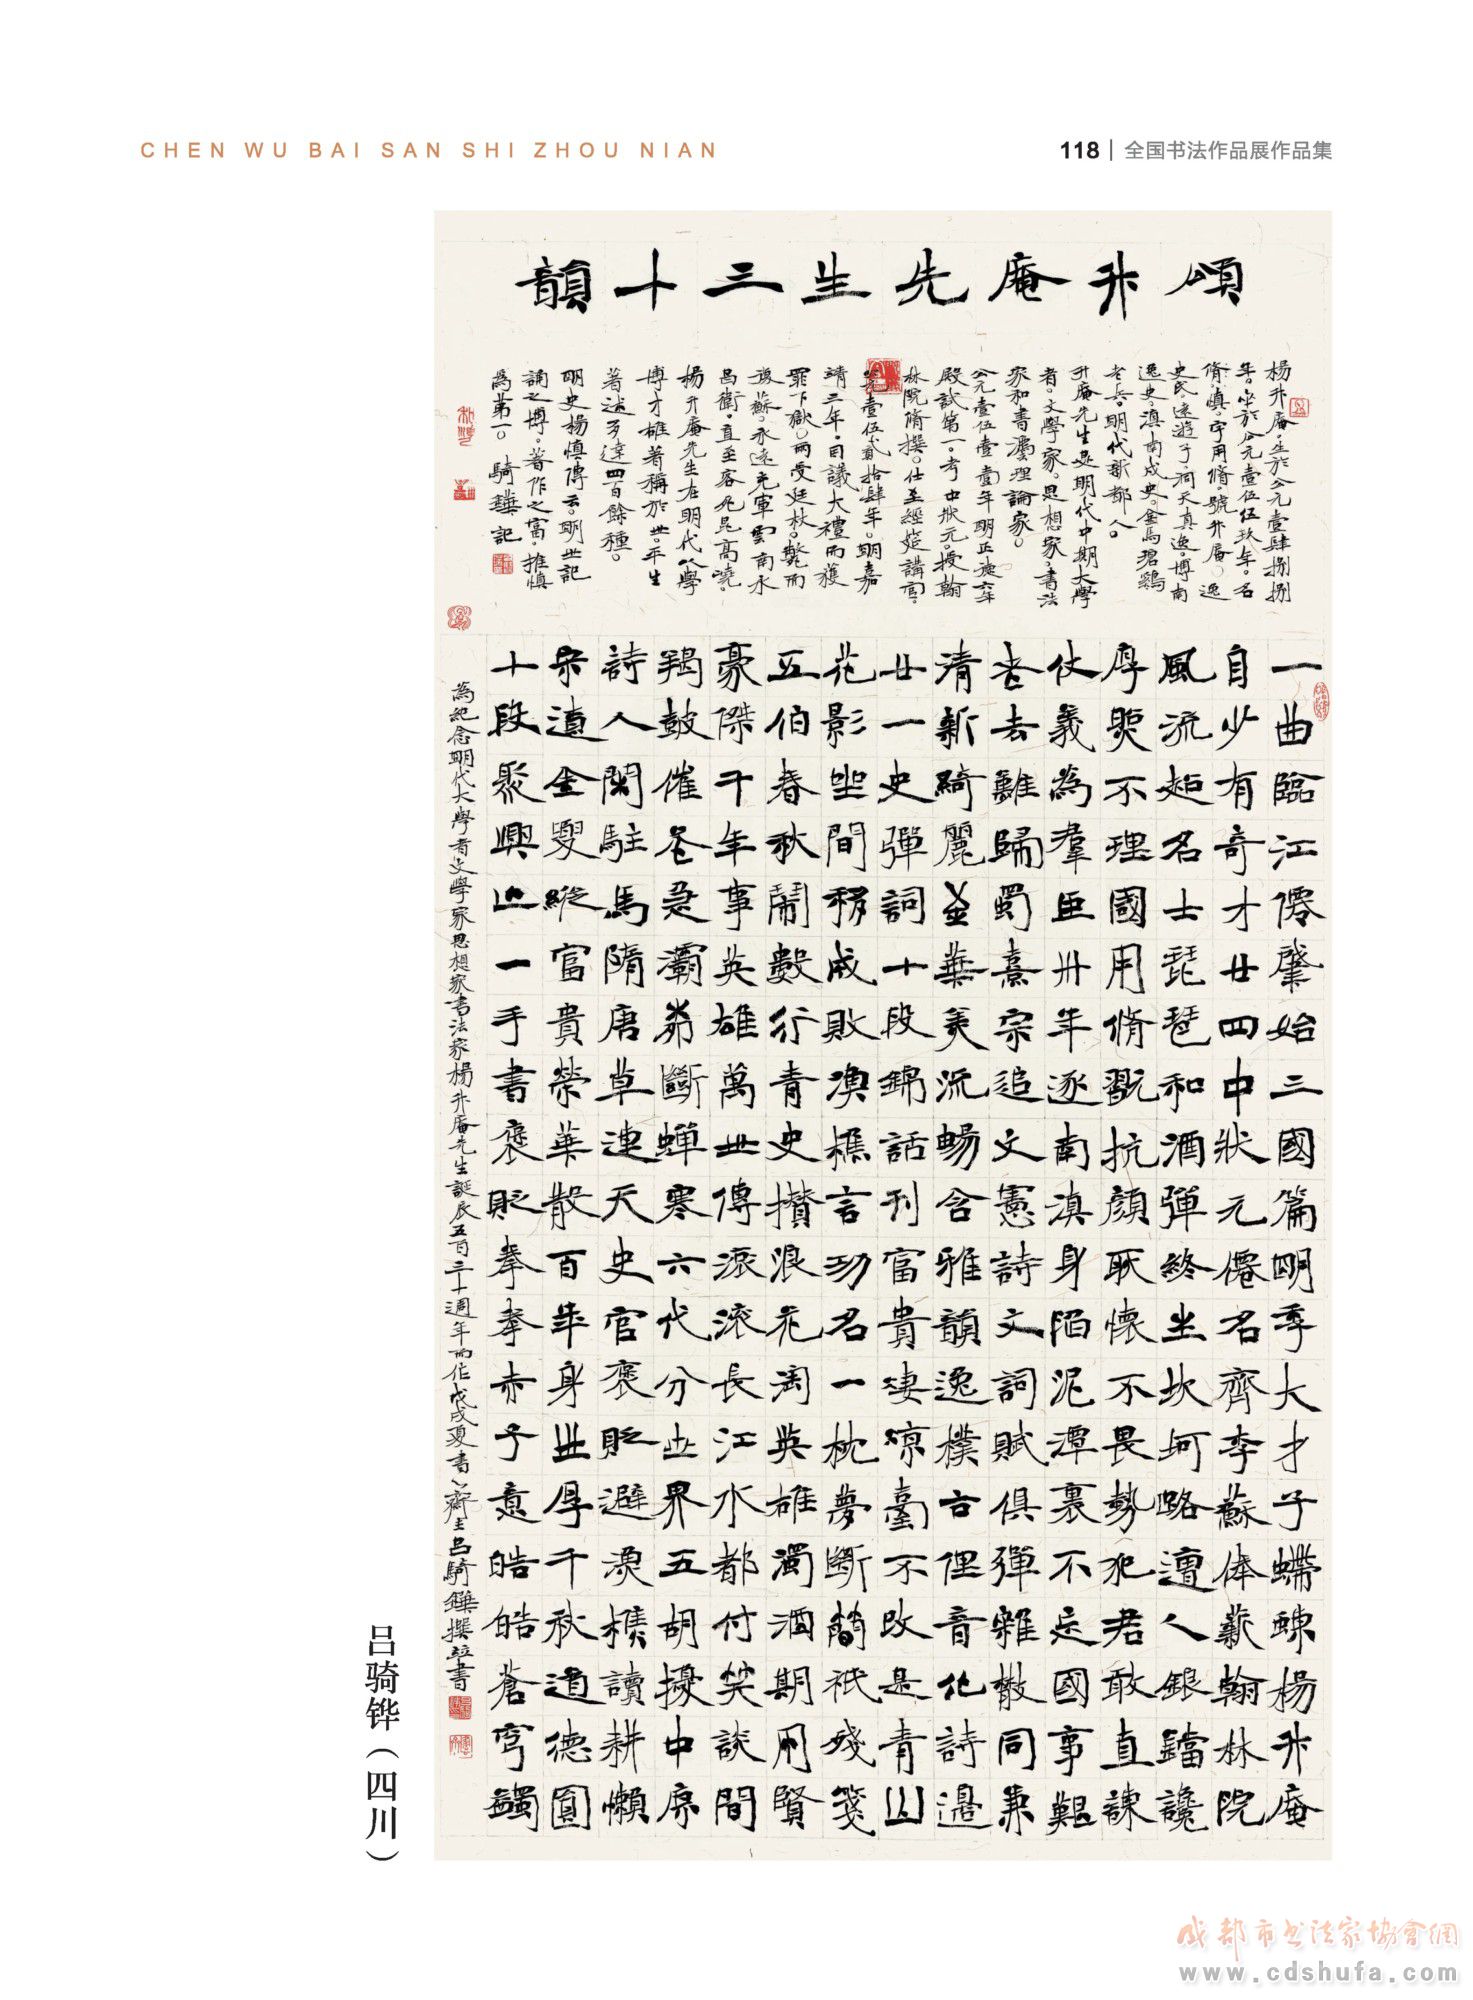 CHEN WU BAI SAN SHI ZHOU NIAN
118 | 全国书法作品展作品集
頌升庵先生三十韻
楊升庵。生於公元壹肆捌捌
年。卒於公元壹伍伍玖年。名
脩慎。字用脩。號升庵。逸
史氏。遠遊子。洞天真逸。博南
逸史。滇南戍史。金馬碧雞
老兵。明代新都人。
升庵先生是明代中期大學
者。文學家。思想家。書法
家和書灋理論家。
公元壹伍壹壹年明正德六年
殿試第一。考中狀元。授翰
林院脩撰。仕至經筵講官。
元壹伍貳拾肆年。明嘉
靖三年。因議大禮而獲
罪下獄。兩受廷杖。斃而
復蘇。永遠充軍雲南永
昌衛。直至客死昆高嶢。
楊升庵先生在明代以學
博才雄著稱於世。平生
著述多達四百餘種。
明史楊慎傳云。明世記
誦之博。著作之富。推慎
為第一。騎鏵記
一曲臨江僊肇始三國篇明季大才子蝀楊升庵
自少有奇才廿四中狀元僊名齊李蘇体薪翰林院
風流超名士琵琶和酒彈終生坎坷略遭人銀鐺讒
厚爨不理國用脩抗顏耿懷不畏勢犯君敢直諫
仗義為羣臣卅年逐南滇身陷泥潭裏不忘國事艱
老去難歸蜀熹宗追文憲詩文詞賦俱彈雜散同兼
清新綺麗並華美流暢含雅韻逸樸古俚音化詩邊
廿一史彈詞十段錦話刊富貴淒涼臺不改是青山
花影坐間移成敗漁樵言功名一枕夢斷簡祇殘箋
五伯春秋鬧數行青史攢浪花淘英雄濁酒期用賢
豪傑千年事英雄萬世傳滾滾長江水都付笑談間
羯鼓催花急灞岸斷蟬寒六代分世界五胡擾中原
詩人閑駐馬隋唐草連天史官褒貶避漁樵讀耕懶
宋遼金縱富貴榮華散百年身世厚千秋道德圓
十段聚興亡一手書褒貶拳拳赤子意皓皓蒼穹蠲
為紀念明代大學者文學家思想家書法家楊升庵先生誕辰五百三十週年而作戊戌夏書〻齋主呂騎鏵撰並書
吕骑铧（四川）
成都市书法家协會網
www.cdshufa.com